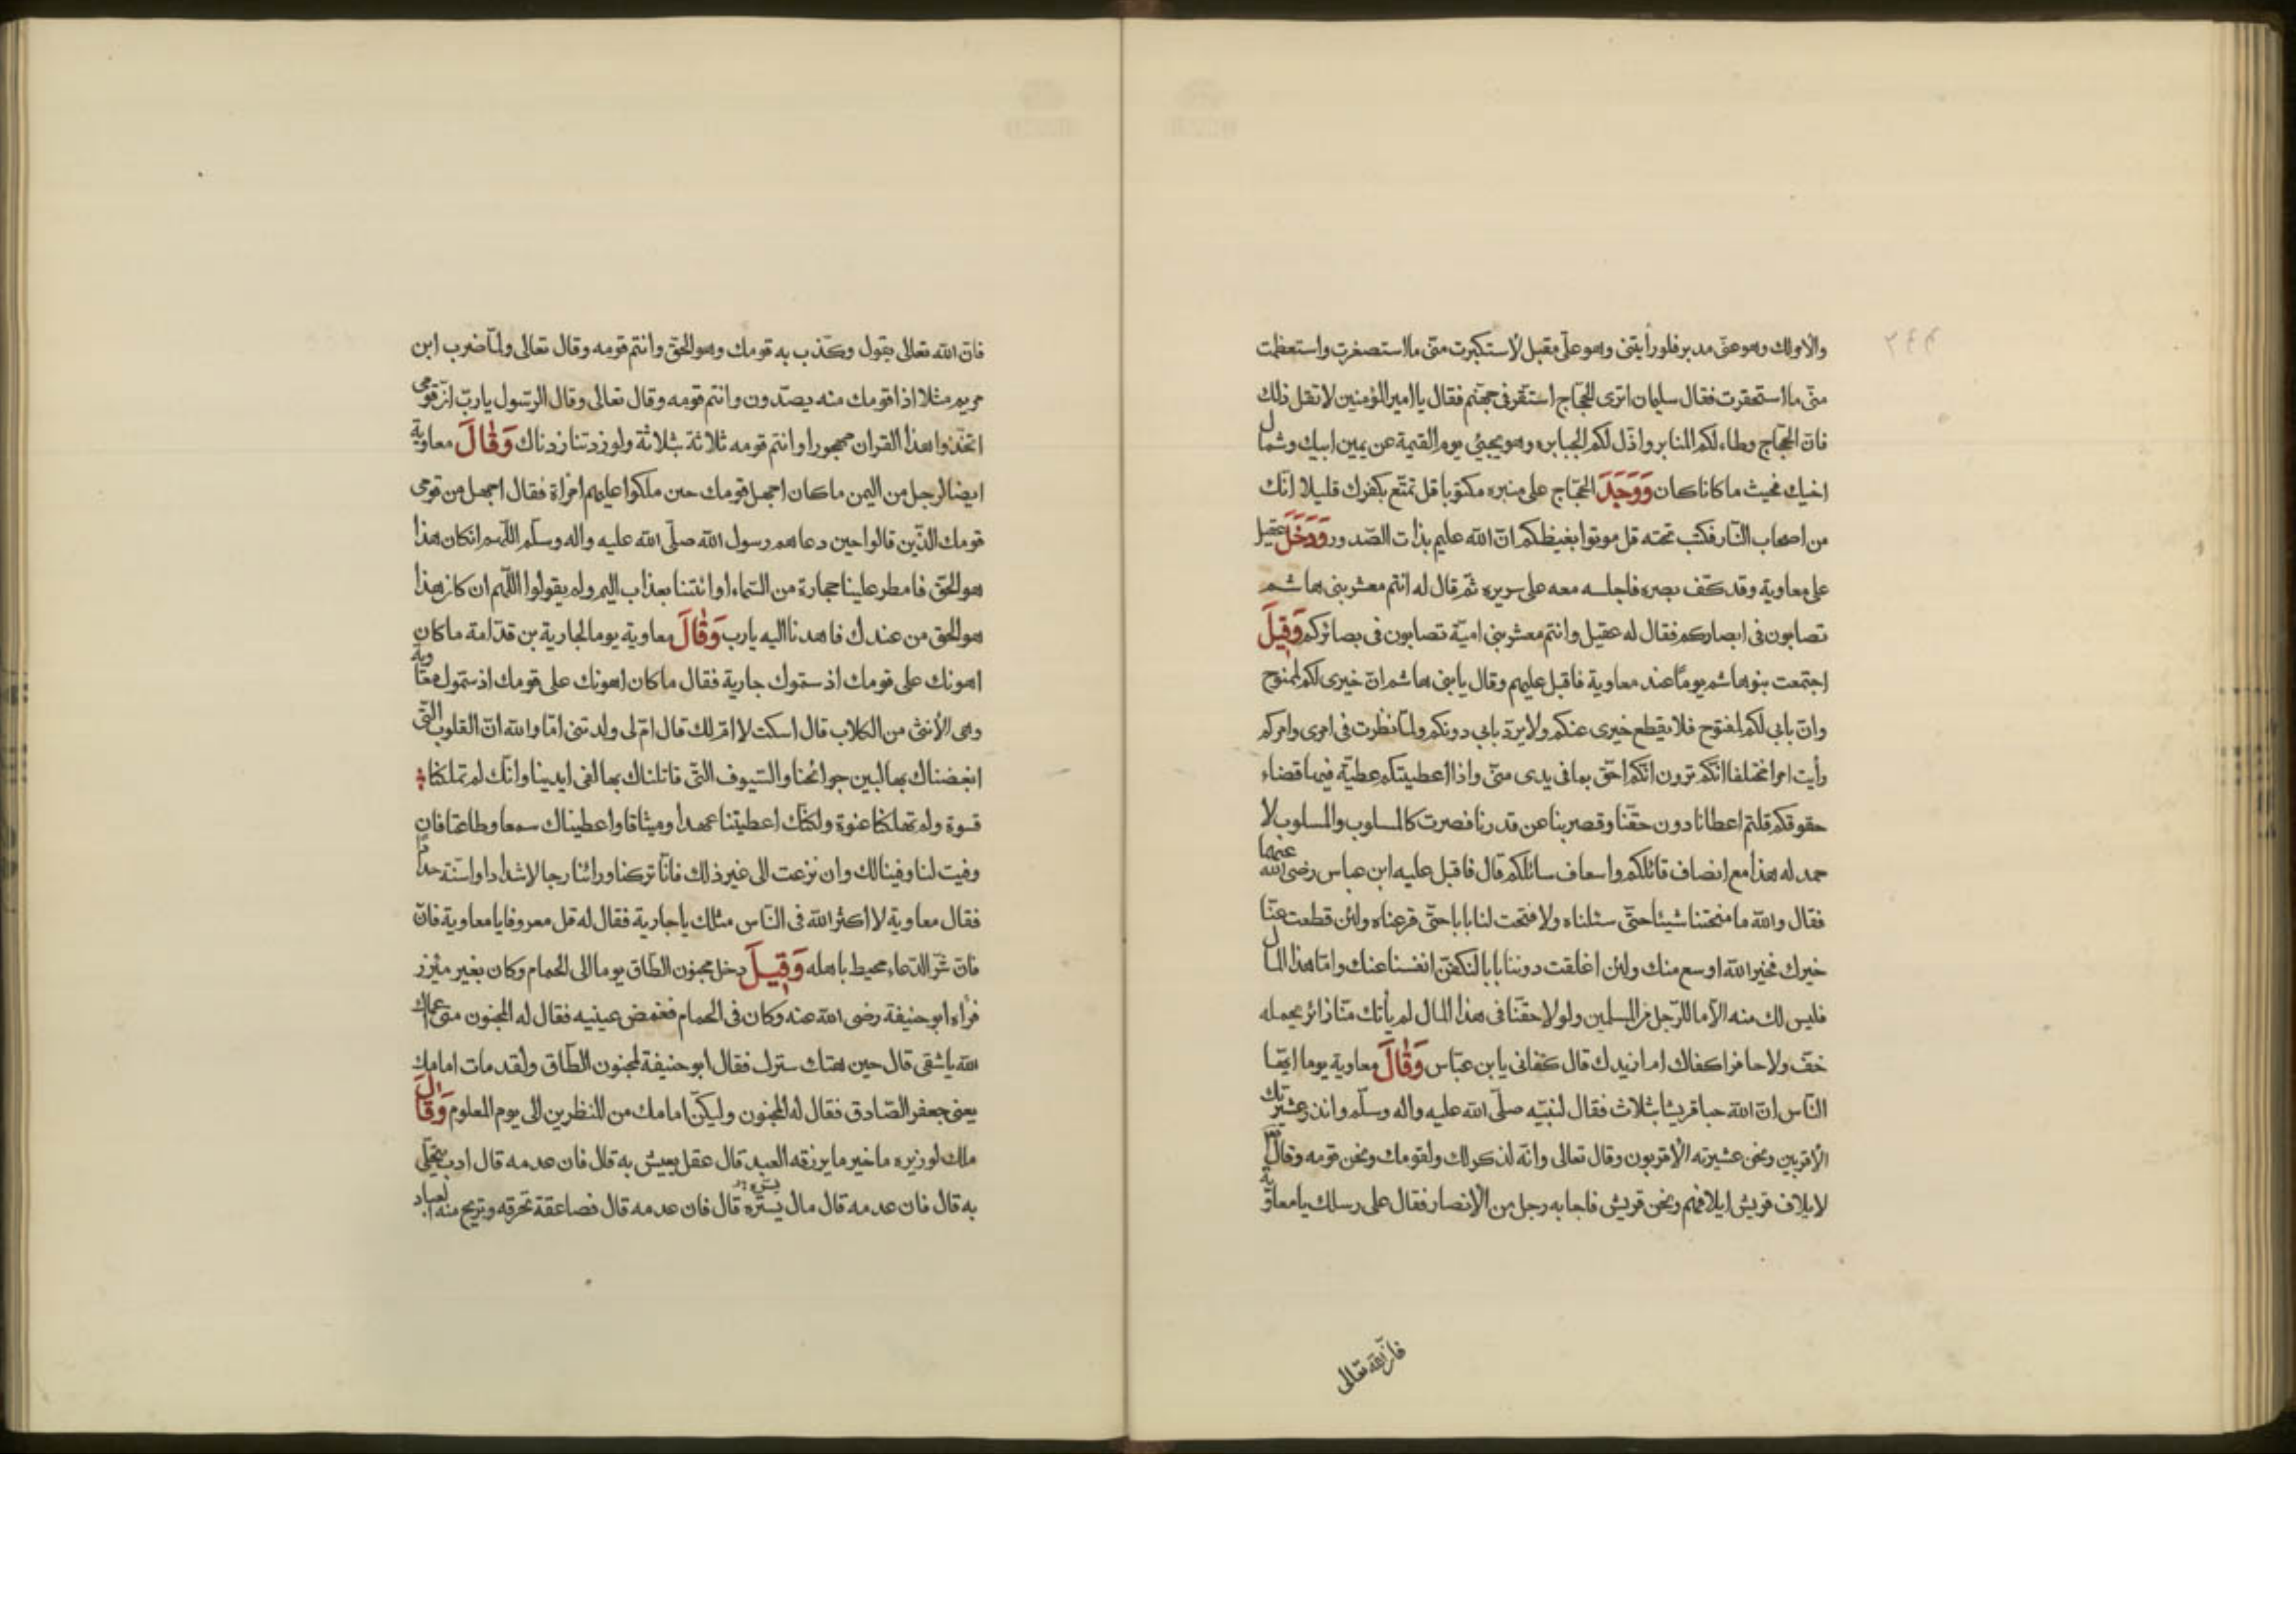 والامر لك وهو عنّى مدبر فلو رأيتنى وهو علىّ مقبل لاستكبرت منّى ما استصغرت واستعظمت
منّى ما استحقرت فقال سليمان اترى الحجّاج استقرّ فى جهنّم فقال يا امير المؤمنين لا تقل ذلك
فان الحجّاج وطاء لكم المنابر واذلّ لكم الجبابره وهو يجيئ يوم القيمة عن يمين ابيك وشمال
اخيك فحيث ما كانا كان وَوَجَدَ الحجّاج على منبره مكتوبا قل تمتّع بكفرك قليلا انّك
من اصحاب النّار فكتب تحته قل موتوا بغيظكم انّ الله عليم بذات الصّدور وَدَخَلَ عقيل
على معاوية وقد كفّ بصره فاجلسه معه على سريره ثمّ قال له انتم معشر بنى هاشم
تصابون فى ابصاركم فقال له عقيل وانتم معشر بنى اميّة تصابون فى بصائركم وَقِيلَ
اجتمعت بنو هاشم يومًا عند معاوية فاقبل عليهم وقال يا بنى هاشم انّ خيرى لكم لممنوح
وانّ بابى لكم لمفتوح فلا يقطع خيرى عنكم ولا يردّ بابى دونكم ولمّا نظرت فى امرى وامركم
رأيت امرا مختلفا انّكم ترون انّكم احقّ بما فى يدى منّى واذا اعطيتكم عطيّة فيها قضاء
حقوقكم قلتم اعطانا دون حقّنا وقصر بنا عن قدرنا فصرت كالمسلوب والمسلوب لا
حمد له هذا مع انصاف قائلكم واسعاف سائلكم قال فاقبل عليه ابن عباس رضى الله عنهما
فقال والله ما منحتنا شيئا حتّى سئلناه ولا فتحت لنا بابا حتّى قرعناه ولئن قطعت عنّا
خيرك فخير الله اوسع منك ولئن اغلقت دوننا بابا لنكفنّ انفسنا عنك وامّا هذا المال
فليس لك منه الّا ما للرّجل من المسلمين ولولا حقّنا فى هذا المال لم يأتك منّا زائر يحمله
خفّ ولا حافر اكفاك ام ازيدك قال كفانى يا بن عبّاس وَقَالَ معاوية يوما ايّها
النّاس انّ الله حبا قريشا بثلاث فقال لنبيّه صلّى الله عليه واله وسلّم وانذر عشيرتك
الأقربين ونحن عشيرته الأقربون وقال تعالى وانّه لذكر لك ولقومك ونحن قومه وقال
لايلاف قريش ايلافهم ونحن قريش فاجابه رجل من الانصار فقال على رسلك يا معاوية
فان الله تعالى
فان الله تعالى يقول وكذّب به قومك وهو الحقّ وانتم قومه وقال تعالى ولمّا ضرب ابن
مريم مثلا اذا قومك منه يصدّون وانتم قومه وقال تعالى وقال الرّسول يا ربّ انّ قومى
اتّخذوا هذا القران مهجورا وانتم قومه ثلاثة بثلاثة ولو زدتنا زدناك وَقَالَ معاوية
ايضا لرجل من اليمن ما كان اجهل قومك حين ملكوا عليهم امرأة فقال اجهل من قومى
قومك الذّين قالوا حين دعاهم رسول الله صلّى الله عليه واله وسلّم اللّهم ان كان هذا
هو الحقّ فامطر علينا حجارة من السّماء او ائتنا بعذاب اليم ولم يقولوا اللّهم ان كان هذا
هو الحق من عندك فاهدنا اليه يارب وَقَالَ معاوية يوما لجارية بن قدّامة ما كان
اهونك على قومك اذ ستموك جارية فقال ما كان اهونك على قومك اذ ستموك معاوية
وهى الأنثى من الكلاب قال اسكت لا امّ لك قال امّ لى ولدتنى امّا والله انّ القلوب التّى
ابغضناك بها لبين جوانحنا والسّيوف التّى قاتلناك بها لفى ايدينا وانّك لم تملكنا
قسوة ولم تهلكنا عنوة ولكنّك اعطيتنا عهدا وميثاقا واعطيناك سمعا وطاعتا فان
وفيت لنا وفينا لك وان نزعت الى غير ذلك فانّا تركنا ورائنا رجالا شدادا واسنّة حدادًا
فقال معاوية لا اكثر الله فى النّاس مثلك يا جارية فقال له قل معروفا يا معاوية فانّ
فانّ شرّ الدّعاء محيط باهله وَقِيلَ دخل مجنون الطّاق يوما الى الحمام وكان بغير مئزر
فرأه ابو حنيفة رضى الله عنه وكان فى الحمام فغمض عينيه فقال له المجنون متى عماك
الله يا شقى قال حين هتك سترك فقال ابو حنيفة لمجنون الطّاق ولقد مات امامك
يعنى جعفر الصّادق فقال له المجنون وليكنّ امامك من المنظرين الى يوم المعلوم وَقَالَ
ملك لوزيره ما خير ما يرزقه العبد قال عقل يعيش به قال فان عدمه قال ادب يتحلّى
به قال فان عدمه قال مال يستره قال فان عدمه قال فصاعقة تحرقه وتريح منه العباد